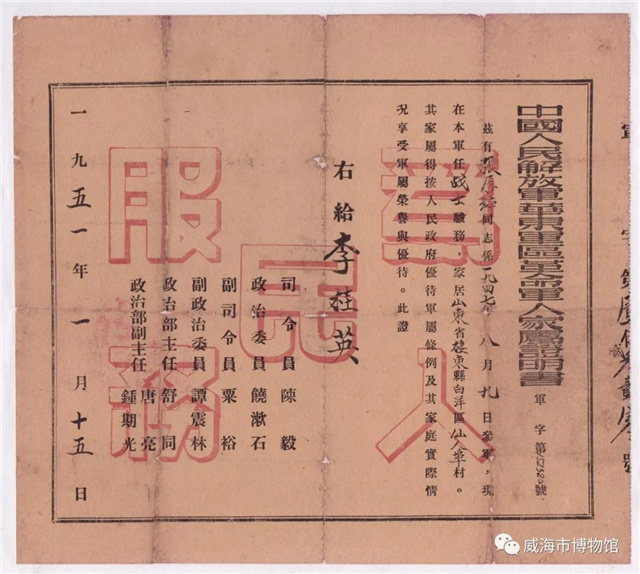 中國人民解放軍華東軍區革命軍人家屬證明書
軍字第號
茲有張同志係一九四七年八月九日參軍，現
在本軍任战士職務，家居山東省棲東縣白洋區仙人埠村。
其家屬得按人民政府優待軍屬條例及其家庭實際情
況享受軍屬榮譽與優待。此證
右給李桂英
司令員陳毅
政治委員饒漱石
副司令員粟裕
副政治委員譚震林
政治部主任舒同
政治部副主任唐亮
鍾期光
一九五一年一月十五日
為人民服務
威海市博物馆